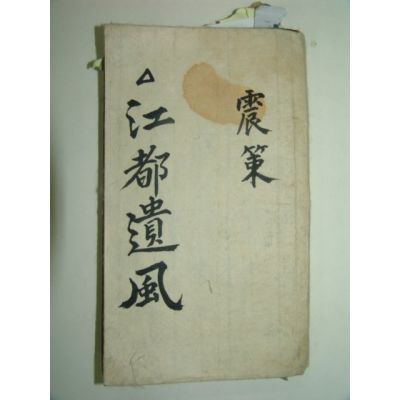 震策
江都遺風